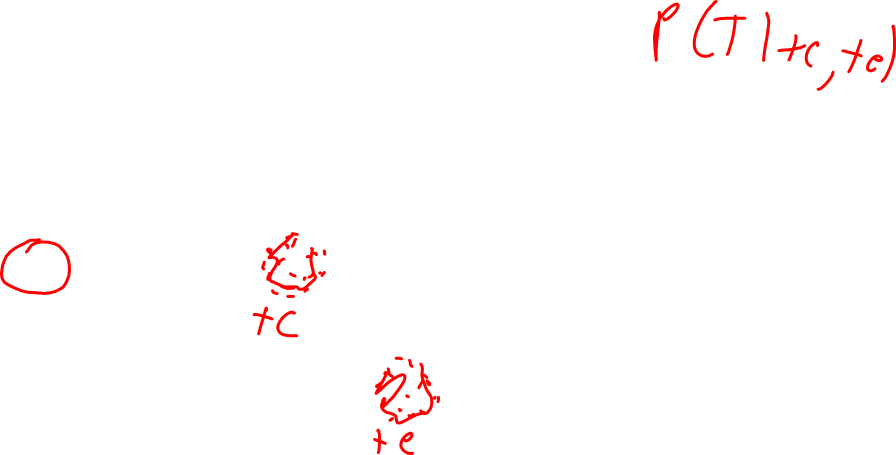 P(T|+c,+e)
+c
+e